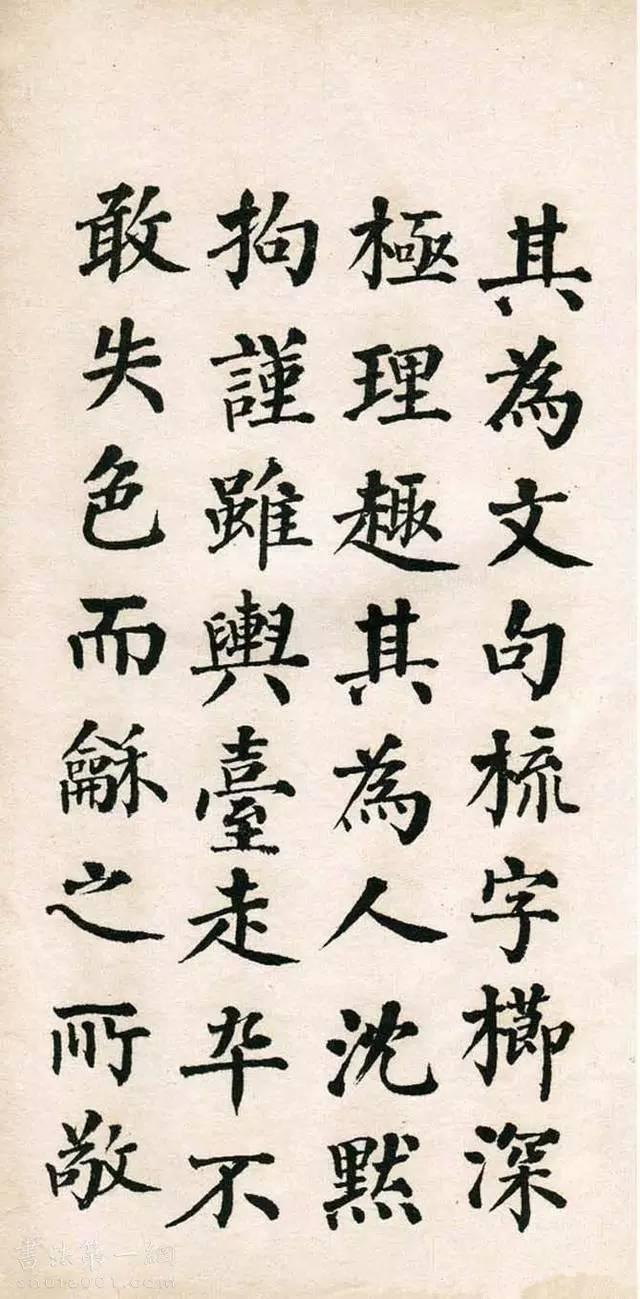 其為文句梳字櫛深
極理趣其為人沈默
拘謹雖輿臺走卒不
敢失色而龢之所敬
書法第一網
shufa001.com